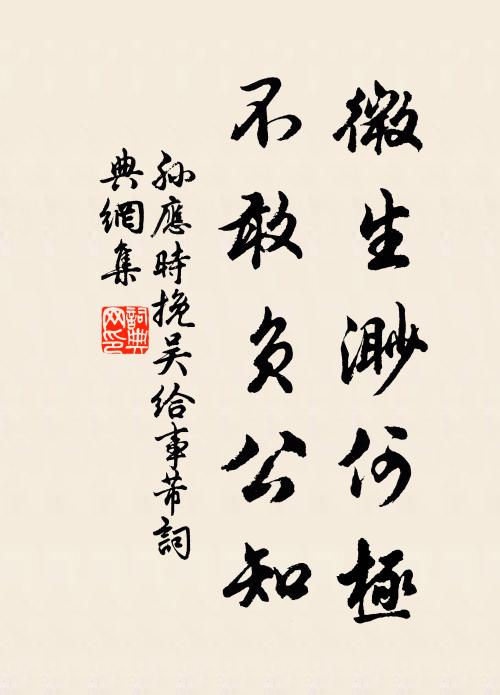 微生渺何極
不敢負公知
孫應時挽吴給事芾詞
典網集
詞典
网印